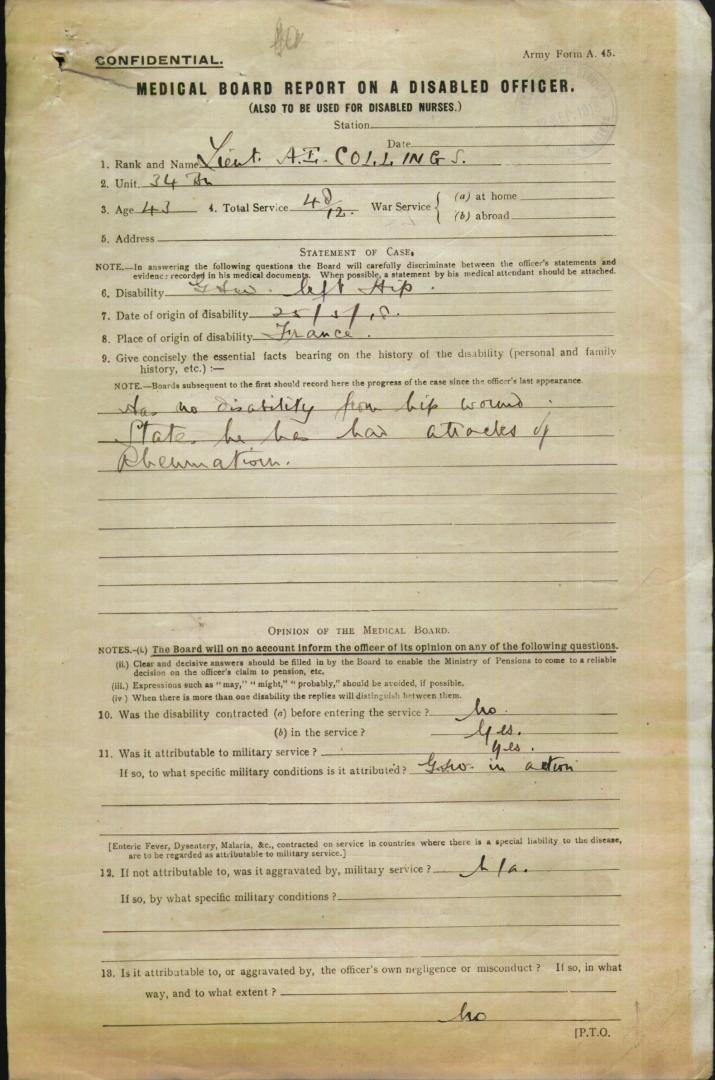 CONFIDENTIAL.
Army Form A. 45.
MEDICAL BOARD REPORT ON A DISABLED OFFICER.
(ALSO TO BE USED FOR DISABLED NURSES.)
Station
Date
1. Rank and Name Lieut. A.E. COLLINGS.
2. Unit. 34 Bn
3. Age 43 4. Total Service 4 8/12. War Service { (a) at home
(b) abroad
5. Address
STATEMENT OF CASE.
NOTE.—In answering the following questions the Board will carefully discriminate between the officer's statements and
evidence recorded in his medical documents. When possible, a statement by his medical attendant should be attached.
6. Disability GSW. left Hip.
7. Date of origin of disability 25/5/18.
8. Place of origin of disability France.
9. Give concisely the essential facts bearing on the history of the disability (personal and family
history, etc.) :—
NOTE.—Boards subsequent to the first should record here the progress of the case since the officer's last appearance.
Has no disability from hip wound.
States he has had attacks of
Rheumatism.
OPINION OF THE MEDICAL BOARD.
NOTES.-(i.) The Board will on no account inform the officer of its opinion on any of the following questions.
(ii.) Clear and decisive answers should be filled in by the Board to enable the Ministry of Pensions to come to a reliable
decision on the officer's claim to pension, etc.
(iii.) Expressions such as "may," "might," "probably," should be avoided, if possible.
(iv) When there is more than one disability the replies will distinguish between them.
10. Was the disability contracted (a) before entering the service ? No.
(b) in the service ? Yes.
11. Was it attributable to military service ? Yes.
If so, to what specific military conditions is it attributed ? G.S.W. in action
[Enteric Fever, Dysentery, Malaria, &c., contracted on service in countries where there is a special liability to the disease,
are to be regarded as attributable to military service.]
12. If not attributable to, was it aggravated by, military service ? N/a.
If so, by what specific military conditions ?
13. Is it attributable to, or aggravated by, the officer's own negligence or misconduct ? If so, in what
way, and to what extent ?
No
[P.T.O.